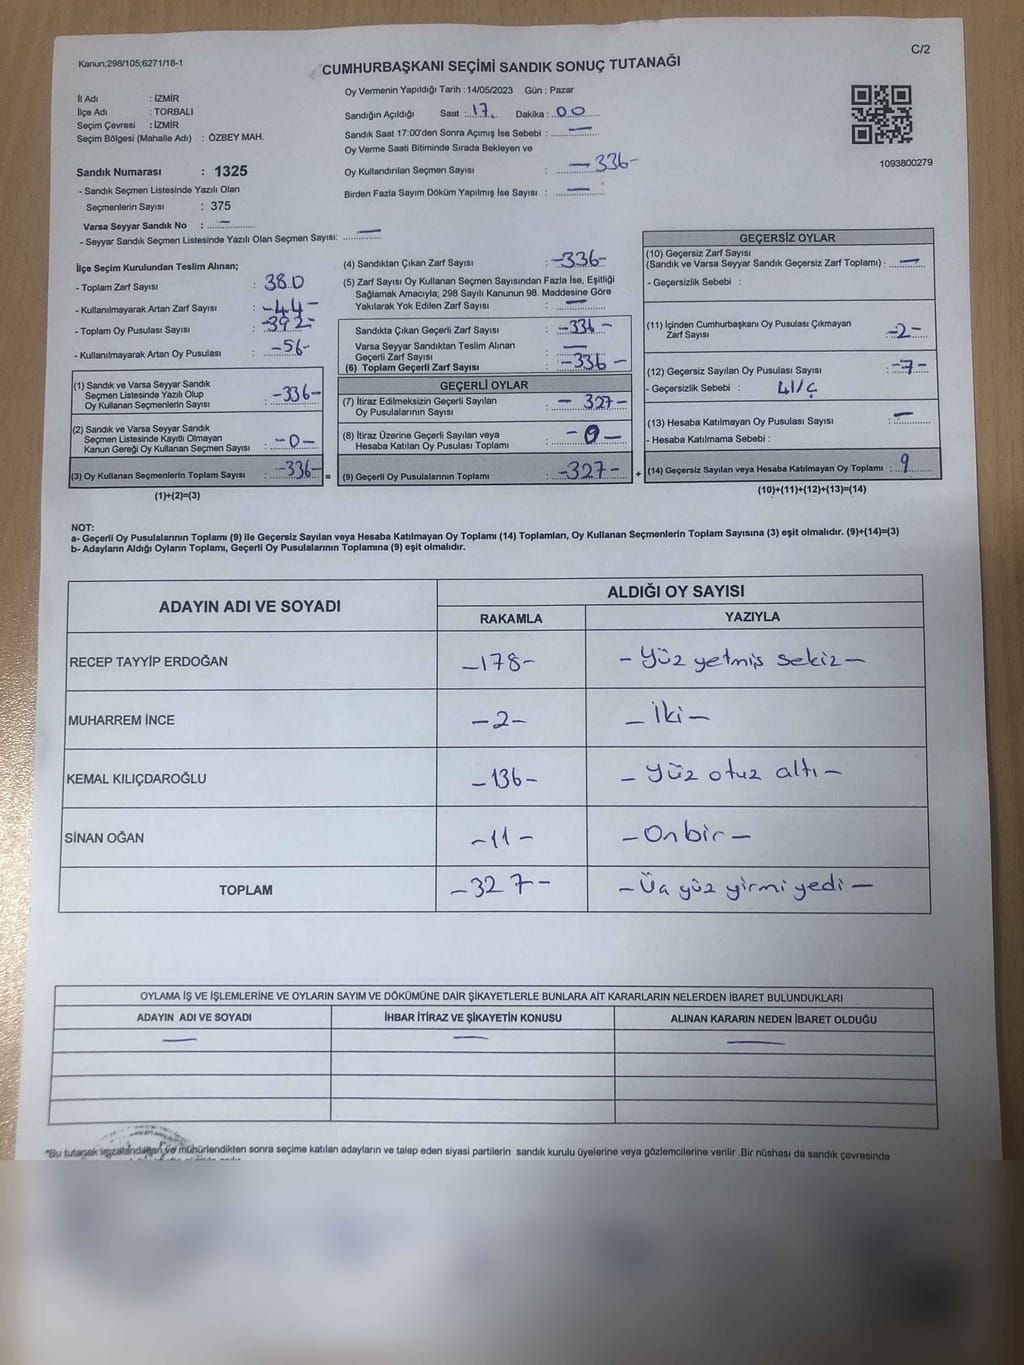 Kanun;298/105;6271/18-1
C/2
CUMHURBAŞKANI SEÇİMİ SANDIK SONUÇ TUTANAĞI
İl Adı : İZMİR
İlçe Adı : TORBALI
Seçim Çevresi : İZMİR
Seçim Bölgesi (Mahalle Adı) : ÖZBEY MAH.
Sandık Numarası : 1325
- Sandık Seçmen Listesinde Yazılı Olan
Seçmenlerin Sayısı : 375
Varsa Seyyar Sandık No : —
- Seyyar Sandık Seçmen Listesinde Yazılı Olan Seçmen Sayısı: —
Oy Vermenin Yapıldığı Tarih : 14/05/2023 Gün : Pazar
Sandığın Açıldığı Saat : 17 Dakika : 00
Sandık Saat 17:00'den Sonra Açımış İse Sebebi : —
Oy Verme Saati Bitiminde Sırada Bekleyen ve
Oy Kullandırılan Seçmen Sayısı : —336-
Birden Fazla Sayım Döküm Yapılmış İse Sayısı : —
1093800279
İlçe Seçim Kurulundan Teslim Alınan;
- Toplam Zarf Sayısı : 380
- Kullanılmayarak Artan Zarf Sayısı : -44-
- Toplam Oy Pusulası Sayısı : -392-
- Kullanılmayarak Artan Oy Pusulası : -56-
(1) Sandık ve Varsa Seyyar Sandık
Seçmen Listesinde Yazılı Olup
Oy Kullanan Seçmenlerin Sayısı : -336-
(2) Sandık ve Varsa Seyyar Sandık
Seçmen Listesinde Kayıtlı Olmayan
Kanun Gereği Oy Kullanan Seçmen Sayısı : -0-
(3) Oy Kullanan Seçmenlerin Toplam Sayısı : -336-
(1)+(2)=(3)
(4) Sandıktan Çıkan Zarf Sayısı : -336-
(5) Zarf Sayısı Oy Kullanan Seçmen Sayısından Fazla İse, Eşitliği
Sağlamak Amacıyla; 298 Sayılı Kanunun 98. Maddesine Göre
Yakılarak Yok Edilen Zarf Sayısı : —
Sandıkta Çıkan Geçerli Zarf Sayısı : -336-
Varsa Seyyar Sandıktan Teslim Alınan
Geçerli Zarf Sayısı : —
(6) Toplam Geçerli Zarf Sayısı : -336-
=
GEÇERLİ OYLAR
(7) İtiraz Edilmeksizin Geçerli Sayılan
Oy Pusulalarının Sayısı : - 327-
(8) İtiraz Üzerine Geçerli Sayılan veya
Hesaba Katılan Oy Pusulası Toplamı : -0-
(9) Geçerli Oy Pusulalarının Toplamı : -327-
+
GEÇERSİZ OYLAR
(10) Geçersiz Zarf Sayısı
(Sandık ve Varsa Seyyar Sandık Geçersiz Zarf Toplamı) : —
- Geçersizlik Sebebi :
(11) İçinden Cumhurbaşkanı Oy Pusulası Çıkmayan
Zarf Sayısı : -2-
(12) Geçersiz Sayılan Oy Pusulası Sayısı : -7-
- Geçersizlik Sebebi : 41/Ç
(13) Hesaba Katılmayan Oy Pusulası Sayısı : —
- Hesaba Katılmama Sebebi :
(14) Geçersiz Sayılan veya Hesaba Katılmayan Oy Toplamı : 9
(10)+(11)+(12)+(13)=(14)
NOT:
a- Geçerli Oy Pusulalarının Toplamı (9) ile Geçersiz Sayılan veya Hesaba Katılmayan Oy Toplamı (14) Toplamları, Oy Kullanan Seçmenlerin Toplam Sayısına (3) eşit olmalıdır. (9)+(14)=(3)
b- Adayların Aldığı Oyların Toplamı, Geçerli Oy Pusulalarının Toplamına (9) eşit olmalıdır.
ADAYIN ADI VE SOYADI
ALDIĞI OY SAYISI
RAKAMLA YAZIYLA
RECEP TAYYİP ERDOĞAN -178- - Yüz yetmiş sekiz -
MUHARREM İNCE -2- - İki -
KEMAL KILIÇDAROĞLU -136- - Yüz otuz altı -
SİNAN OĞAN -11- - On bir -
TOPLAM -327- - Üç yüz yirmi yedi -
OYLAMA İŞ VE İŞLEMLERİNE VE OYLARIN SAYIM VE DÖKÜMÜNE DAİR ŞİKAYETLERLE BUNLARA AİT KARARLARIN NELERDEN İBARET BULUNDUKLARI
ADAYIN ADI VE SOYADI İHBAR İTİRAZ VE ŞİKAYETİN KONUSU ALINAN KARARIN NEDEN İBARET OLDUĞU
— — —
*Bu tutanak imzalandıktan ve mühürlendikten sonra seçime katılan adayların ve talep eden siyasi partilerin sandık kurulu üyelerine veya gözlemcilerine verilir .Bir nüshası da sandık çevresinde